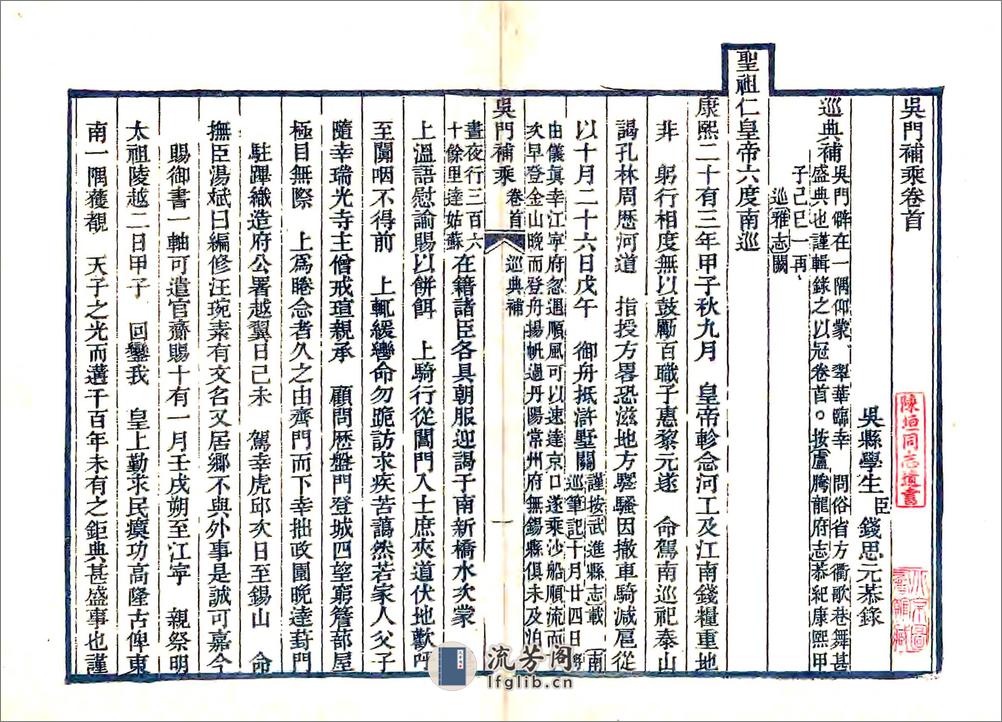 吳門補乘卷首
吳縣學生臣錢思元恭錄
巡典補吳門僻在一隅仰蒙 翠華臨幸 問俗省方衢歌巷舞甚
盛典也謹輯錄之以冠卷首。按盧騰龍府志恭紀康熙甲
子己巳一再
巡雅志闕
聖祖仁皇帝六度南巡
康熙二十有三年甲子秋九月 皇帝軫念河工及江南錢糧重地
非 躬行相度無以鼓勵百職子惠黎元遂 命駕南巡祀泰山
謁孔林周歷河道 指授方畧恐滋地方騷因撤車騎減扈從
以十月二十六日戊午 御舟抵滸墅關謹按武進縣志載 南
巡筆記十月廿四日
由儀眞幸江寧府忽遇順風可以速達京口遂乘沙船順流而
次早登金山晚而登舟揚帆過丹陽常州府無錫縣俱未及泊
吳門補乘 卷首 巡典補 一
晝夜行三百六
十餘里達姑蘇在籍諸臣各具朝服迎謁于南新橋水次蒙
上溫語慰諭賜以餅餌 上騎行從閶門入士庶夾道伏地歡呼
至闐咽不得前 上輒緩轡命勿跪訪求疾苦藹然若家人父子
隨幸瑞光寺主僧戒瑄親承 顧問歷盤門登城四望窮簷蔀屋
極目無際 上爲睠念者久之由齊門而下幸拙政園晚達葑門
駐蹕織造府公署越翼日己未 駕幸虎邱次日至錫山 命
撫臣湯斌曰編修汪琬素有文名又居鄉不與外事是誠可嘉今
賜御書一軸可遣官齎賜十有一月壬戌朔至江寧 親祭明
太祖陵越二日甲子 回鑾我 皇上勤求民瘼功高隆古俾東
南一隅獲覩 天子之光而遘千百年未有之鉅典甚盛事也謹
陳垣同志遺書
流芳阁
lfglib.cn